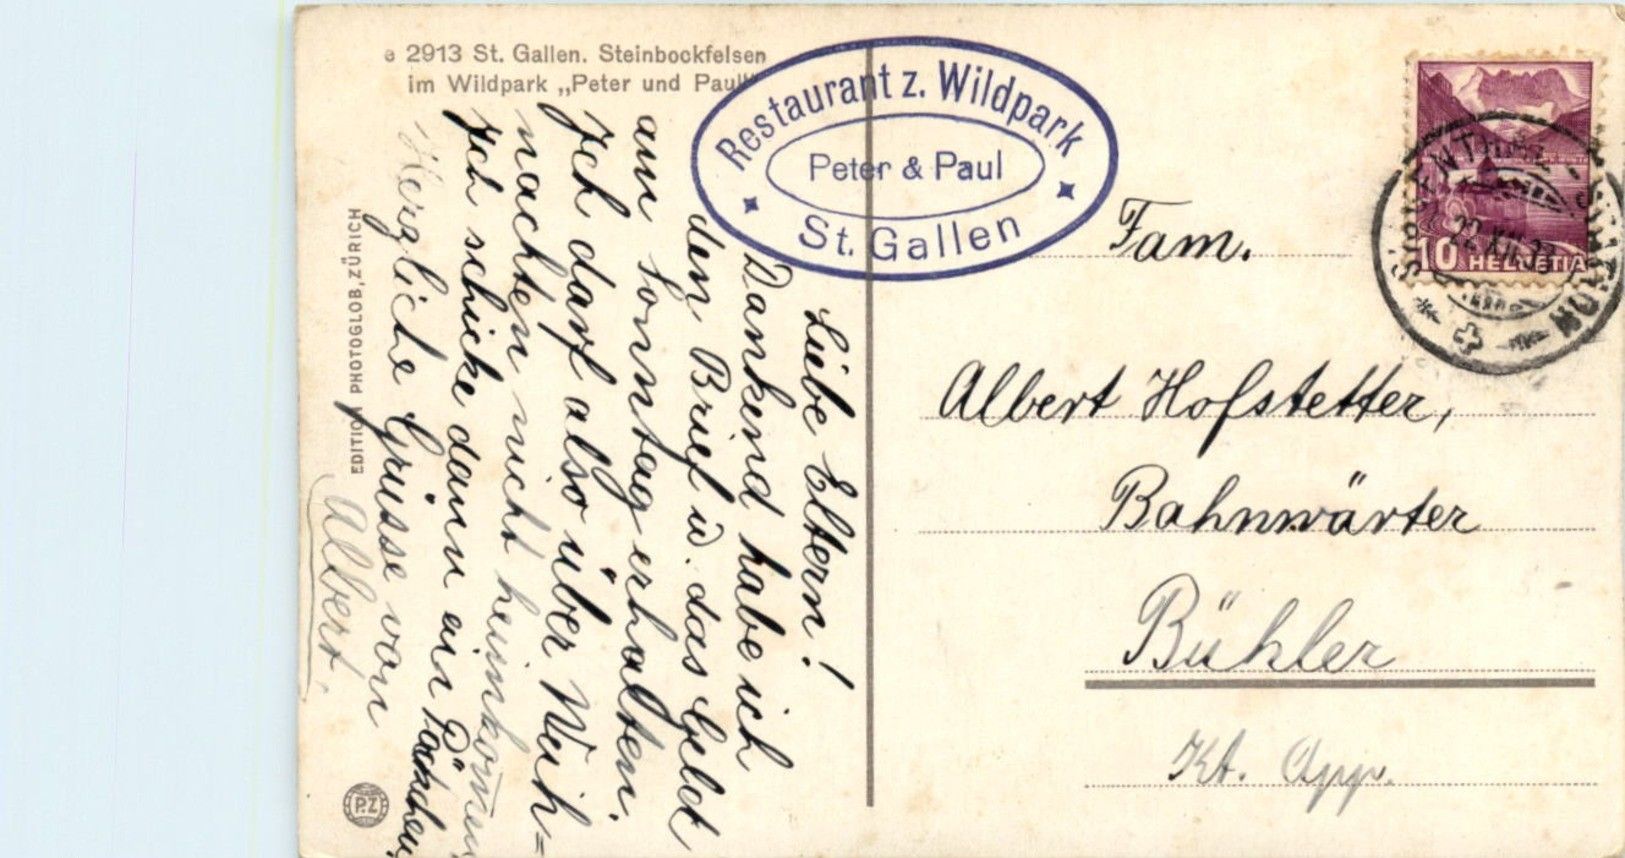 e 2913 St. Gallen. Steinbockfelsen
im Wildpark „Peter und Paul"
Restaurant z. Wildpark
Peter & Paul
St. Gallen
Liebe Eltern!
Dankend habe ich
den Brief u. das Geld
am Sonntag erhalten.
Ich darf also über Weih=
nachten nicht heimkommen
Ich schicke dann ein Päckchen
Herzliche Grüsse von
Albert.
EDITION PHOTOGLOB, ZÜRICH
P.Z
10 HELVETIA
22.XII.
Fam.
Albert Hofstetter,
Bahnwärter
Bühler
Kt. App.